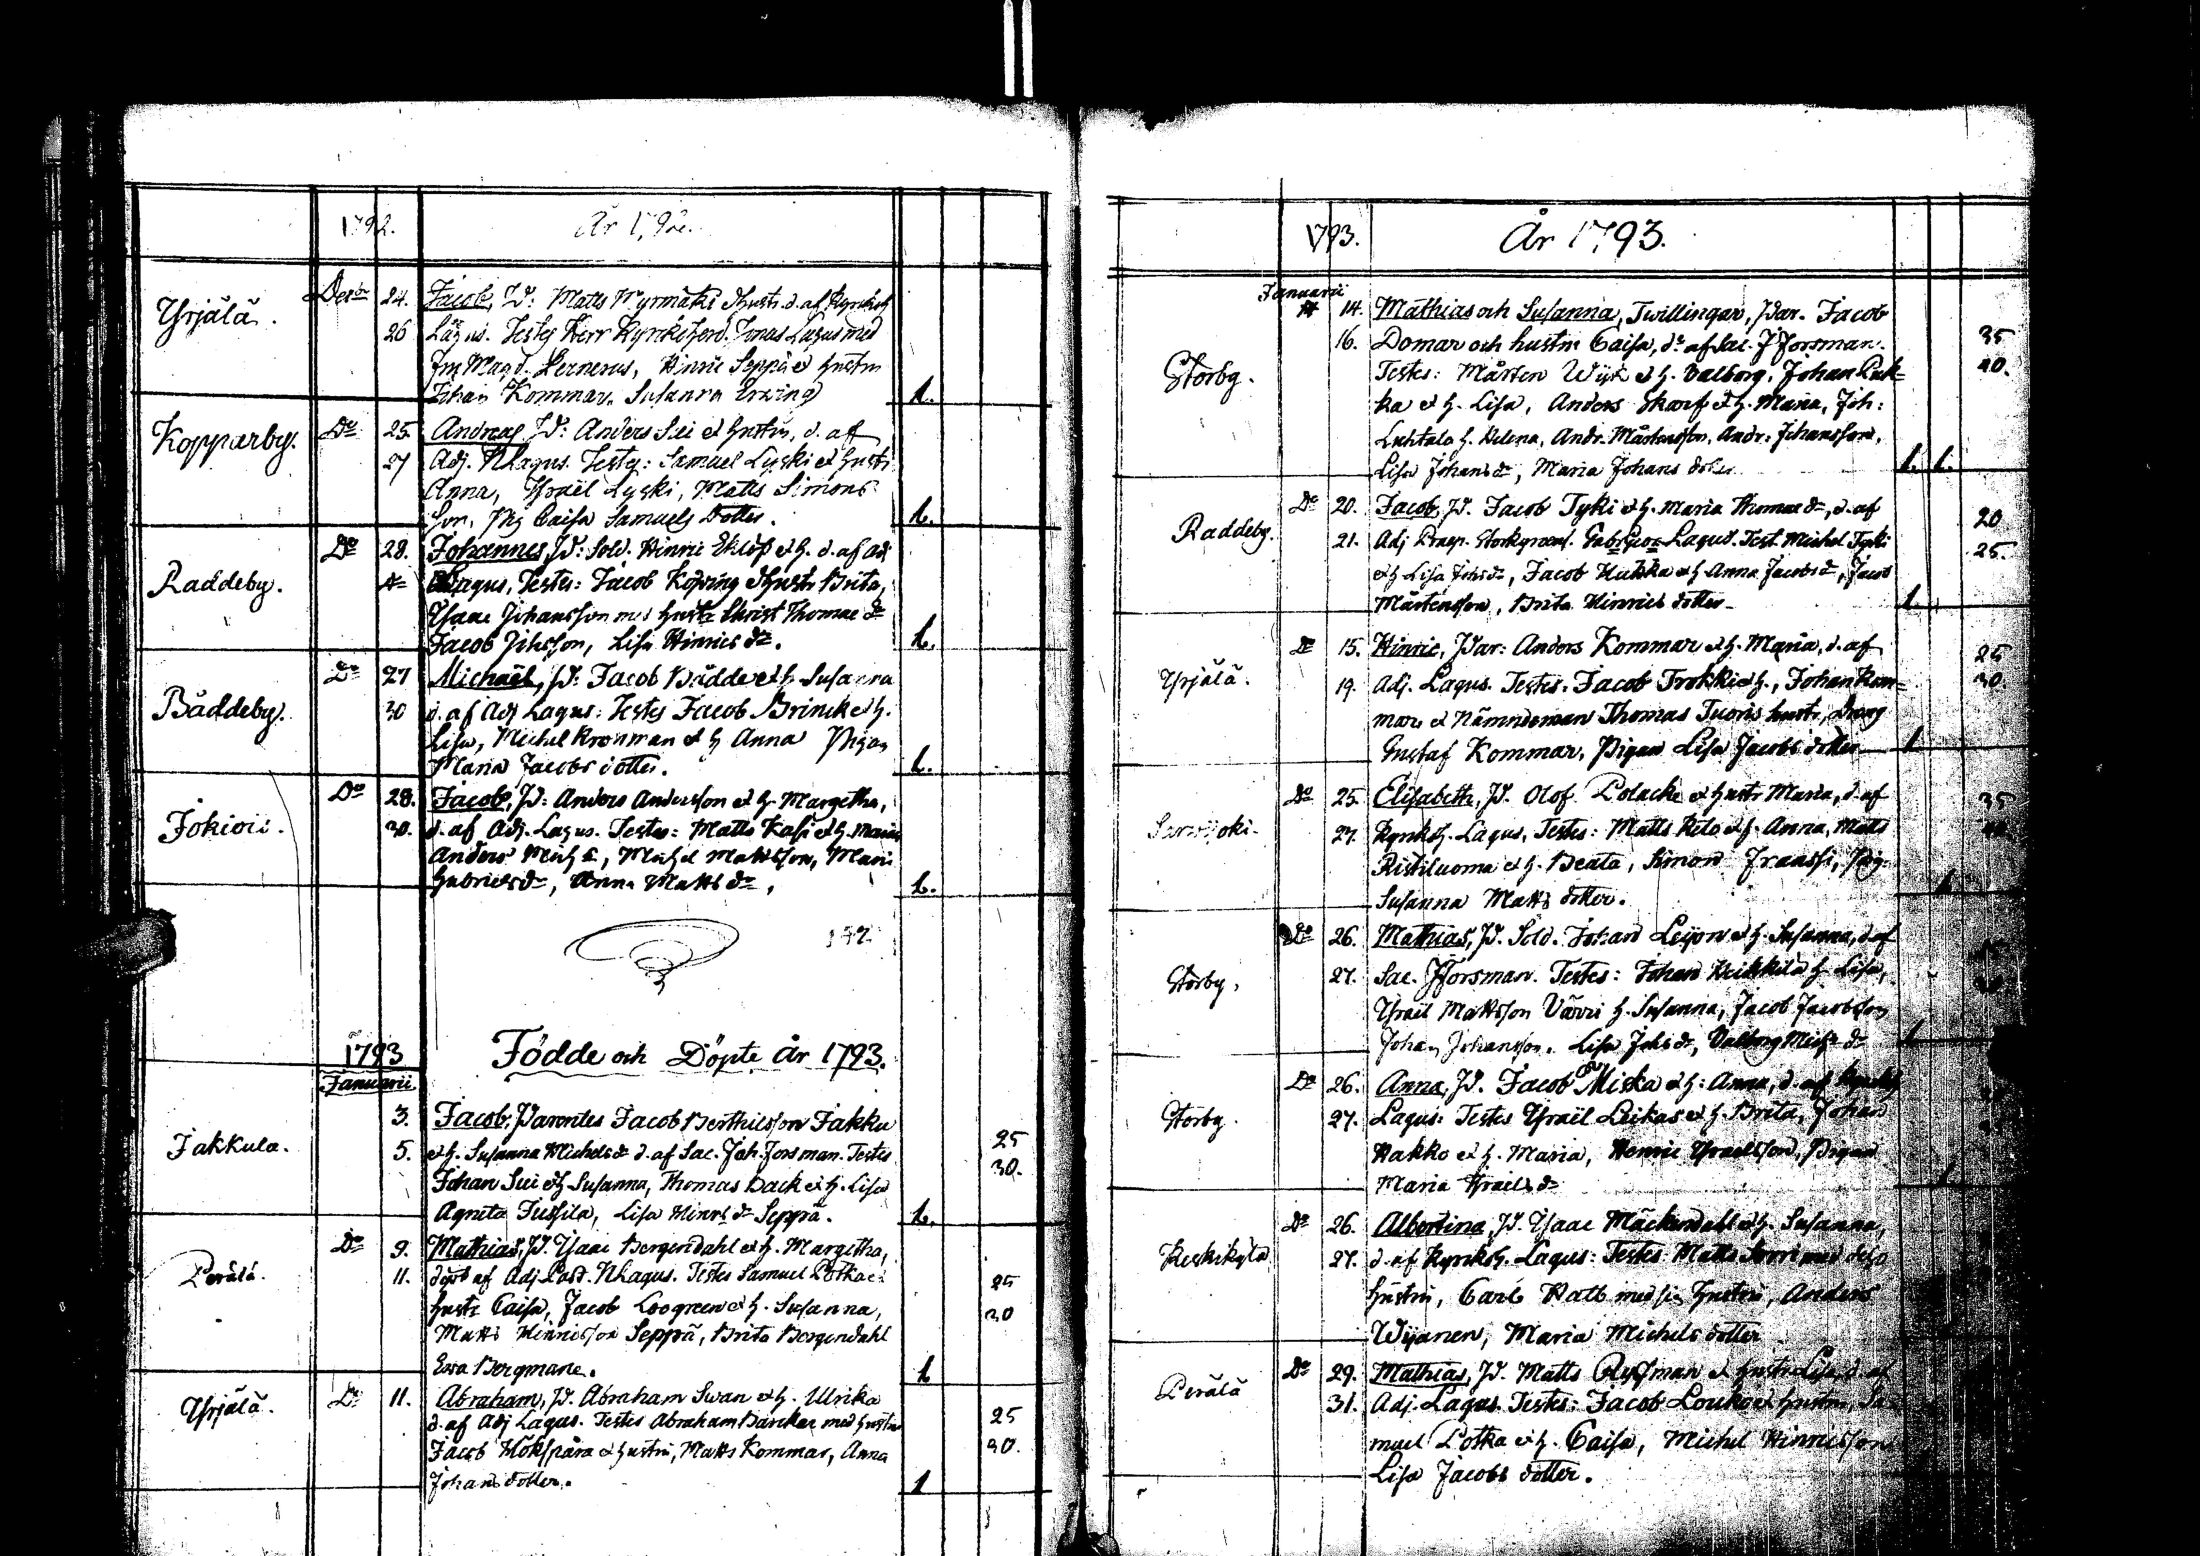 1792. År 1792.
Yrjälä. Decbr 24. Jacob, P: Matts Myrmäki & hustr. d. af Kyrkoh
26 Lagus. Testes Herr Kyrkoherd. Jonas Lagus med
Magd. Lernerus, Hinric Seppä et hustru
Johan Kommar, Susanna
1.
Kopparby. Do 25. Andreas P: Anders Sui et hustru, d. af
27 Adj. NLagus. Testes: Samuel Lyski et hustr
Anna, Ysraël Lyski, Matts Simons
son, Pig Caisa Samuels dotter. 1.
Raddeby. Do 28. Johannes P: Sold. Hinric Eklöf et h. d. af Adj
Lagus, Testes: Jacob Köping et hustr Brita,
Ysaac Johansson med hustr Christ Thomae dr
Jacob Johsson, Lisa Hinrics dr. 1.
Båddeby. Do 27 Michaël, P: Jacob Brädd et h Susanna
30 d. af Adj Lagus: Testes Jacob Brinck et h.
Lisa, Michel Kronman et h Anna Pigan
Maria Jacobs dotter. 1.
Jokioii. Do 28. Jacob, P: Anders Andersson et h Margetha,
30. d. af Adj. Lagus. Testes: Matts Kasi et h. Maria
Anders Mich, Michel Mattsson, Mari
Gabrielsdr, Anna Matts dr, 1.
142
1793 Födde och Döpte år 1793.
Januarii
Jakkula. 3. Jacob, Parentes Jacob Berthilsson Jakku
5. et h. Susanna Michelsdr d. af Sac. Joh. Forsman. Testes 25
Johan Sui et h Susanna, Thomas Back et h. Lisa 30.
Agneta Jussila, Lisa Hinrs dr Seppä. 1.
Perälä. Do 9. Mathias, P. Ysaac Bergendahl et h. Margetha,
11. döpt af Adj Past. NLagus. Testes Samuel Potka et 25
hustr Caisa, Jacob Loogreen et h. Susanna, 30
Matts Hinricsson Seppä, Brita Bergendahl
Ewa Bergman. 1
Yrjälä. Do 11. Abraham, P. Abraham Swan et h. Ulrika
d. af Adj Lagus. Testes Abraham Bäncker med hustru 25
Jacob Hökspära et hustru, Matts Kommar, Anna 30.
Johans dotter. 1
1793. År 1793.
Januarii
Storby. 14. Mathias och Susanna, Twillingar, Par. Jacob
16. Domar och hustru Caisa, d. af Sac. J Forsman. 35
Testes: Mårten Wyk et h. Valborg, Johan Luk= 40.
ka et h. Lisa, Anders Skarf et h. Maria, Joh:
Luhtala h. Helena, Andr. Mårtensson, Andr. Johansson,
Lisa Johans dr, Maria Johans doter 1. 1.
Raddeby. Do 20. Jacob, P. Jacob Tyki et h. Maria Thomae dr, d. af 20
21. Adj Lagus. Test. Michel Tyki 25.
et h Lisa Johsdr, Jacob Hukka et h Anna Jacobs dr, Jacob
Mårtensson, Brita Hinrics dotter 1.
Yrjälä. Do 15. Hinric, Par: Anders Kommar et h. Maria, d. af 25
19. Adj. Lagus. Testes: Jacob Trokki et h., Johan Kom= 30.
mar et Nämndeman Thomas Tuoris hustr, Dräng
Gustaf Kommar, Pigan Lisa Jacobs dotter 1
Do 25. Elisabeth, P. Olof Polack et hustr Maria, d. af 35
27. Kyrkoh. Lagus, Testes: Matts Keto et h. Anna, Matts
Ristiluoma et h. Beata, Simon Franssi, Pig.
Susanna Matts dotter. 1
Storby, Do 26. Mathias, P. Sold. Johan Leijon et h. Susanna, d. af
27. Sac. J Forsman. Testes: Johan Heikkilä h Lisa,
Ysraël Mattsson Värri h. Susanna, Jacob Jacobsson
Johan Johansson, Lisa Johs dr, Valborg Mich dr 1
Storby. Do 26. Anna, P. Jacob Miska et h: Anna, d. af Kyrkoh
27. Lagus: Testes Ysraël Leikas et h. Brita, Johan
Hakko et h. Maria, Henric Ysraelsson, Pigan
Maria Ysraels dr 1
Keskikylä Do 26. Albertina, P. Ysaac Mäckendahl et h. Susanna,
27. d. af Kyrkoh. Lagus: Testes Matts med dess
Hustru, Carl Hall med sin Hustru, Anders
Wijanen, Maria Michels dotter
Perälä Do 29. Mathias, P. Matts Ryssman et hustr Lisa, d. af
31. Adj. Lagus. Testes: Jacob Louko et hustru, Sa
muel Potka et h. Caisa, Michel Hinricsson
Lisa Jacobs dotter.